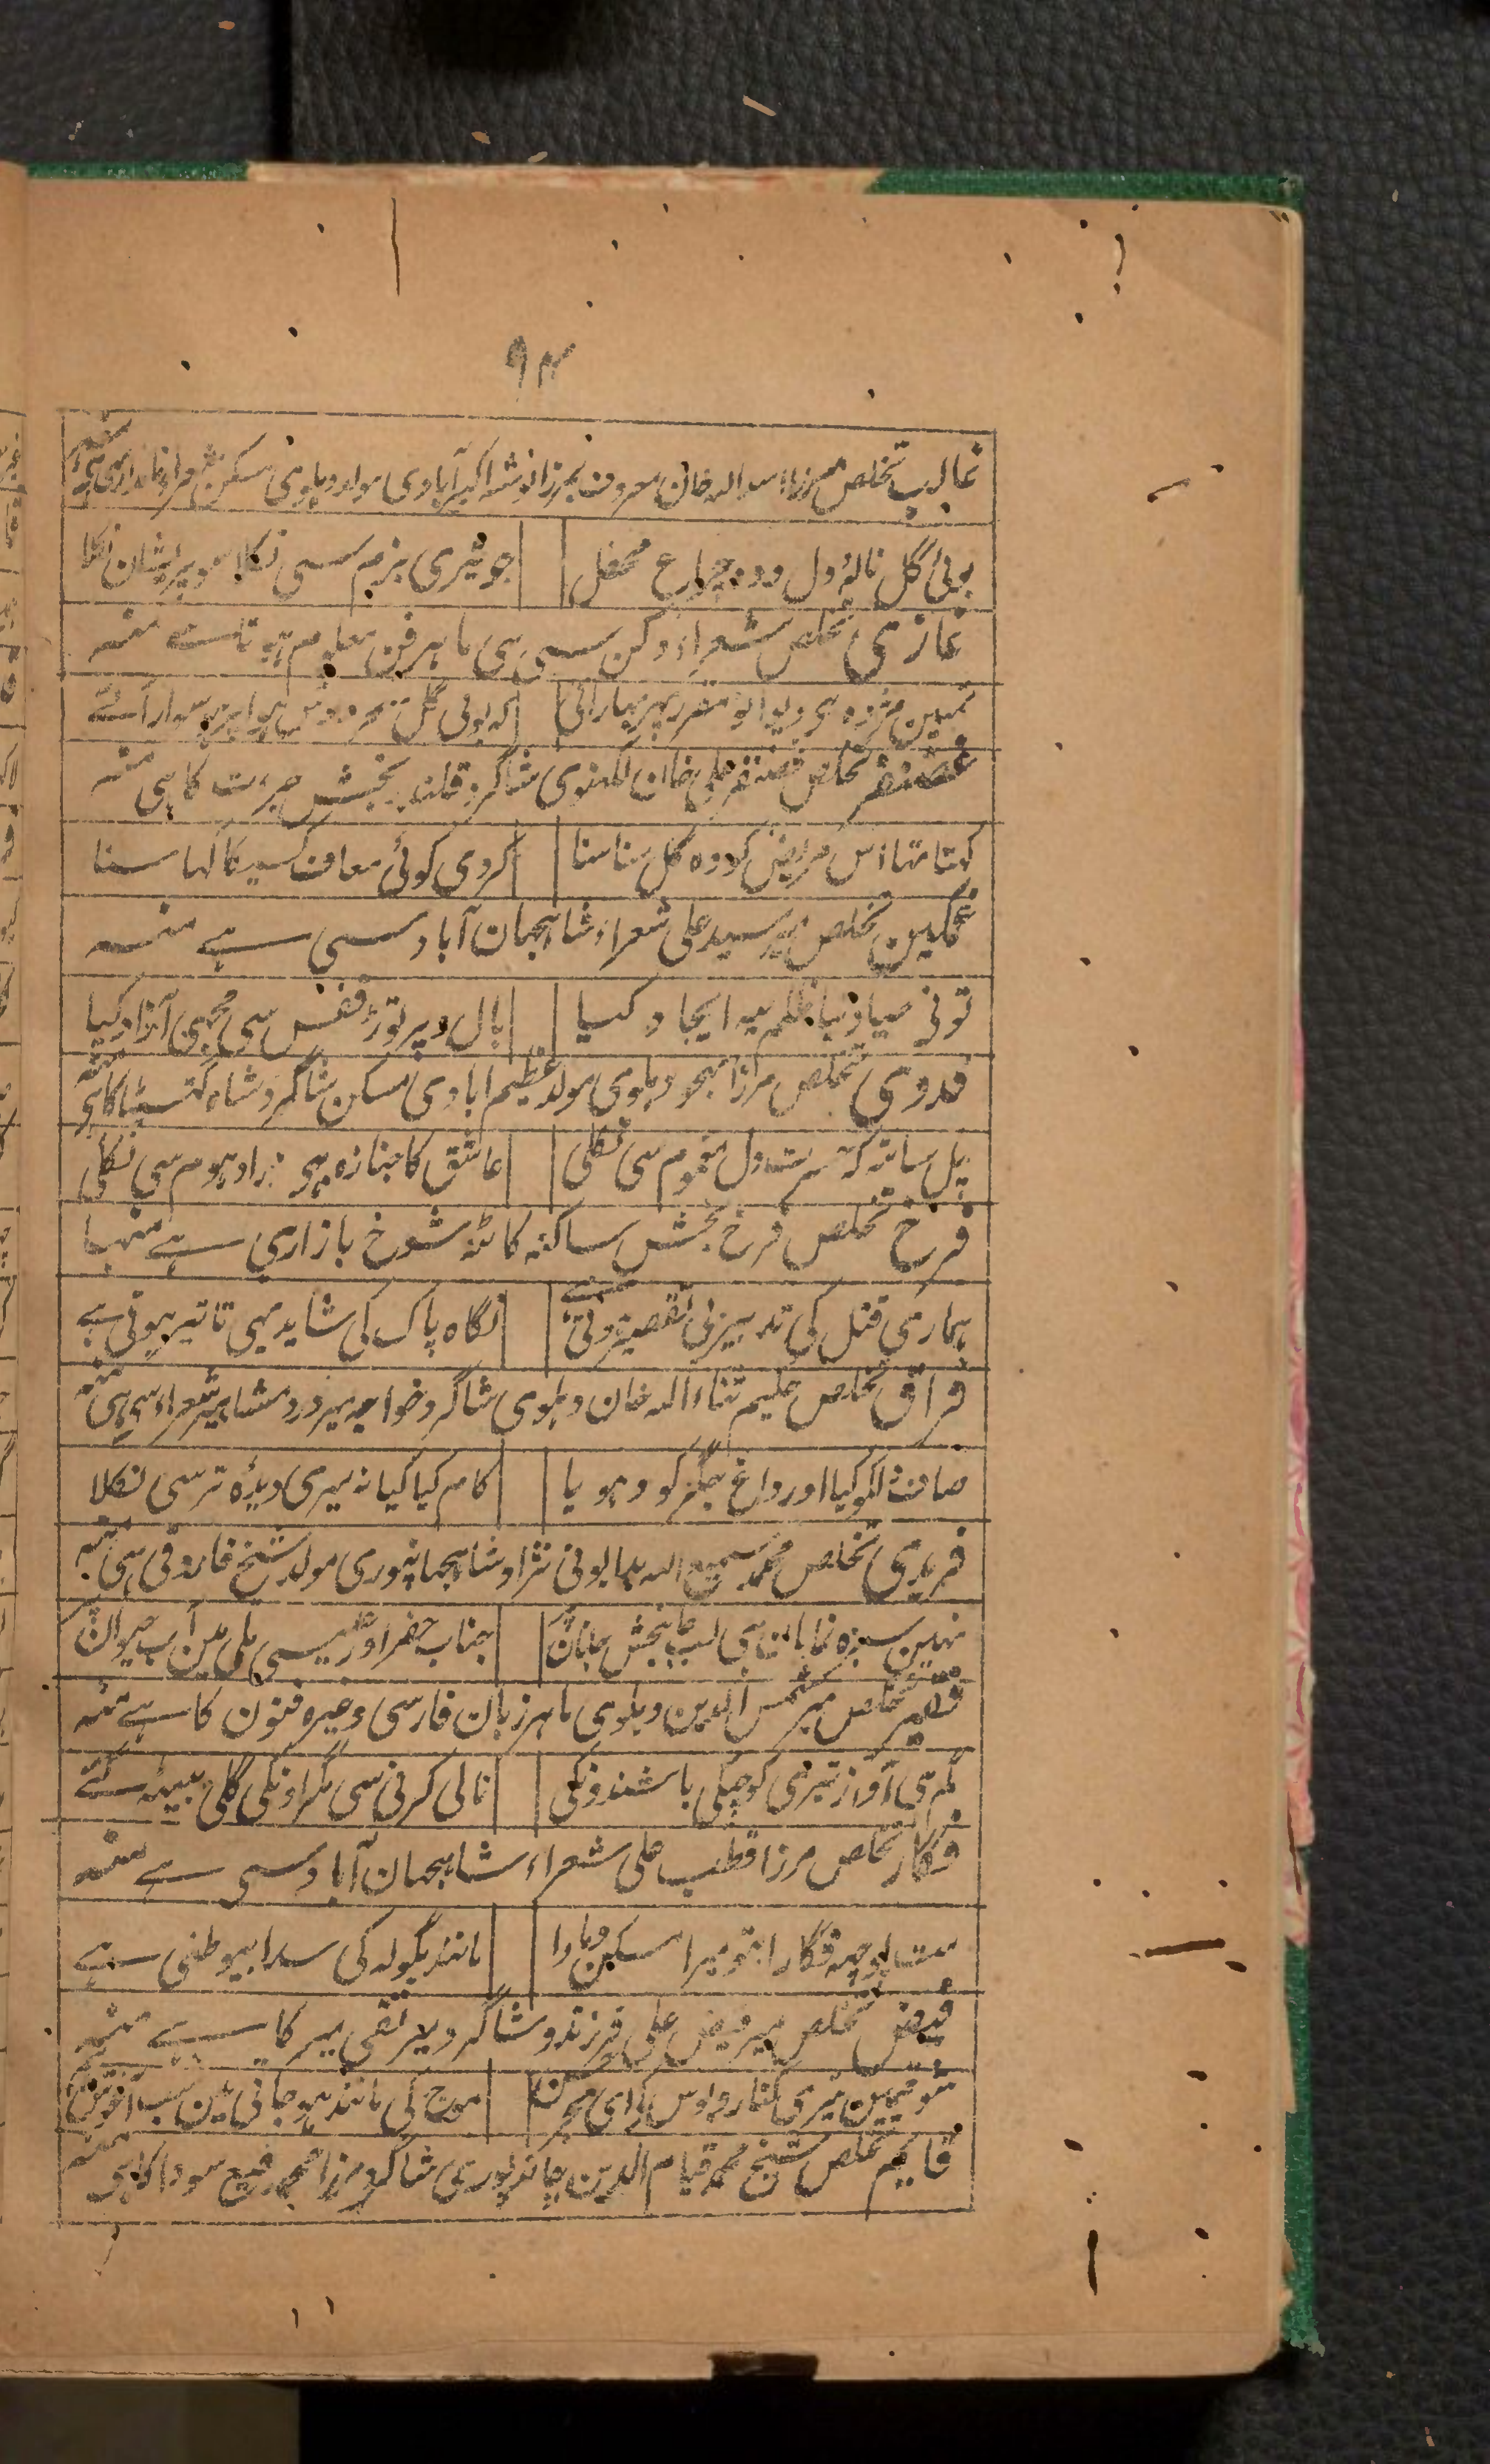 ۹۳
غالب تخلص میرزا اسد اللہ خان معروف بمرزا نوشہ اکبرآبادی مولد دہلوی مسکن شعراء نامداری ہی منہ
بوئی گل نالۂ دل دود چراغ محفل جو تیری بزم سی نکلا سو پریشان نکلا
غازی تخلص شعراء دکن سی ہی ماہر فن معلوم ہوتا ہے منہ
تمہین مژدہ ہو دیوانو مقرر پہر بہار آئی کہ بوئی گل بدوش ہوا پر سوار آئے
غضنفر تخلص غضنفر علی خان لکہنوی شاگرد قلندر بخش جرءت کا ہی منہ
کہتا تہا اس مریض کو دہ کل سنا سنا کر دی کوئی معاف کسیکا کہا سنا
غمگین تخلص میر سید علی شعراء شاہجہان آباد سی ہے منہ
تونی صیاد نیا ظلم یہ ایجاد کیا بال و پر توڑ قفس سی مجہی آزاد کیا
فدوی تخلص مرزا بہجو دہلوی مولد عظیم ابادی مسکن شاگرد شاہ گہسیٹا کا ہی منہ
چل ساتہ کہ حسرت دل مغموم سی نکلی عاشق کا جنازہ ہی ذرا دہوم سی نکلی
فرخ تخلص فرخ بخش ساکنہ کاٹنہ شوخ بازاری ہے منہا
ہماری قتل کی تدبیر بی تقصیر ہوتی ہے نگاہ پاک کی شاید یہی تاثیر ہوتی ہے
فراق تخلص حکیم ثناء اللہ خان دہلوی شاگرد خواجہ میر درد مشاہیر شعراء سی ہی منہ
صاف دلکو کیا اور داغ جگر کو دہویا کام کیا کیا نہ میری دیدۂ تر سی نکلا
فریدی تخلص محمد سمیع اللہ بدایونی نژاد شاہجہانپوری مولد شیخ فاروقی ہی منہ
نہین سبزہ نمایان ہی لب جانبخش جانان پر جناب خضر اور عیسی ملی ہین آب حیوان پر
فقیر تخلص میر شمس الدین دہلوی ماہر زبان فارسی وغیرہ فنون کا ہے منہ
کم ہی آواز تیری کوچیکی باشندونکی نالی کرنی سی مگر اونکی گلی بیٹہ گئے
فگار تخلص مرزا قطب علی شعراء شاہجہان آباد سی ہے منہ
مت پوچہہ فگار اب تو میرا مسکن و ماوا مانند بگولہ کی سدا بیوطنی ہے
فیض تخلص میر فیض علی فرزند و شاگرد میر تقی میر کا ہے منہ
موج کی مانند ہو جاتی ہین سب آغوش
قایم تخلص شیخ محمد قیام الدین چاندپوری شاگرد مرزا محمد رفیع سودا کا ہی منہ